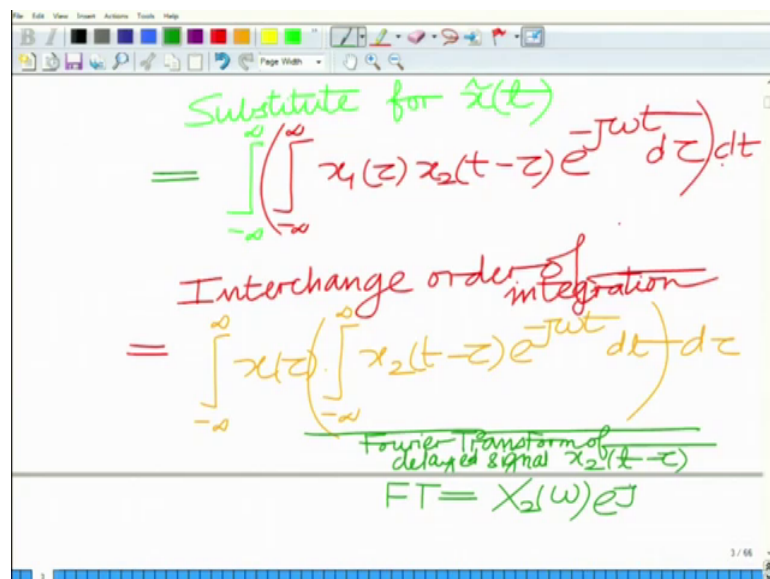 File Edit View Insert Actions Tools Help
B I
Page Width
Substitute for x̃(t)
= ∫_{-∞}^{∞} ( ∫_{-∞}^{∞} x₁(τ) x₂(t-τ) e^{-jωt} dτ ) dt
Interchange order of
integration
= ∫_{-∞}^{∞} x(τ). ( ∫_{-∞}^{∞} x₂(t-τ) e^{-jωt} dt ) dτ
Fourier Transform of
delayed signal x₂(t-τ)
FT = X₂(ω) e^{j
3 / 66
3